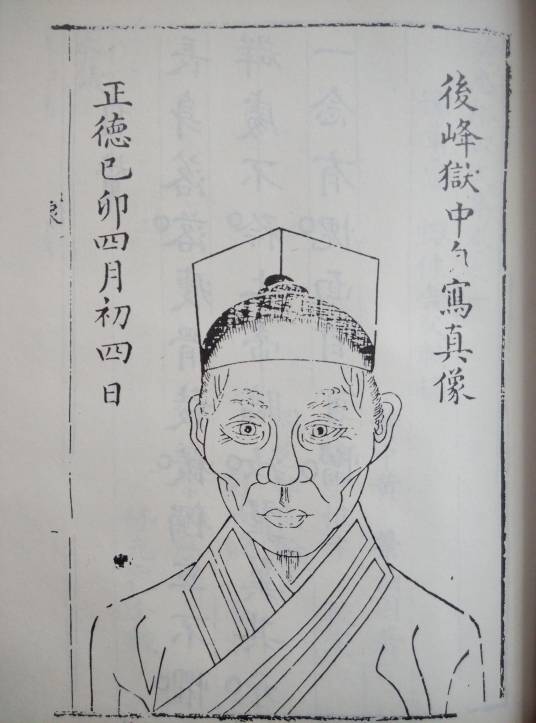 後峰獄中自寫真像
正德己卯四月初四日